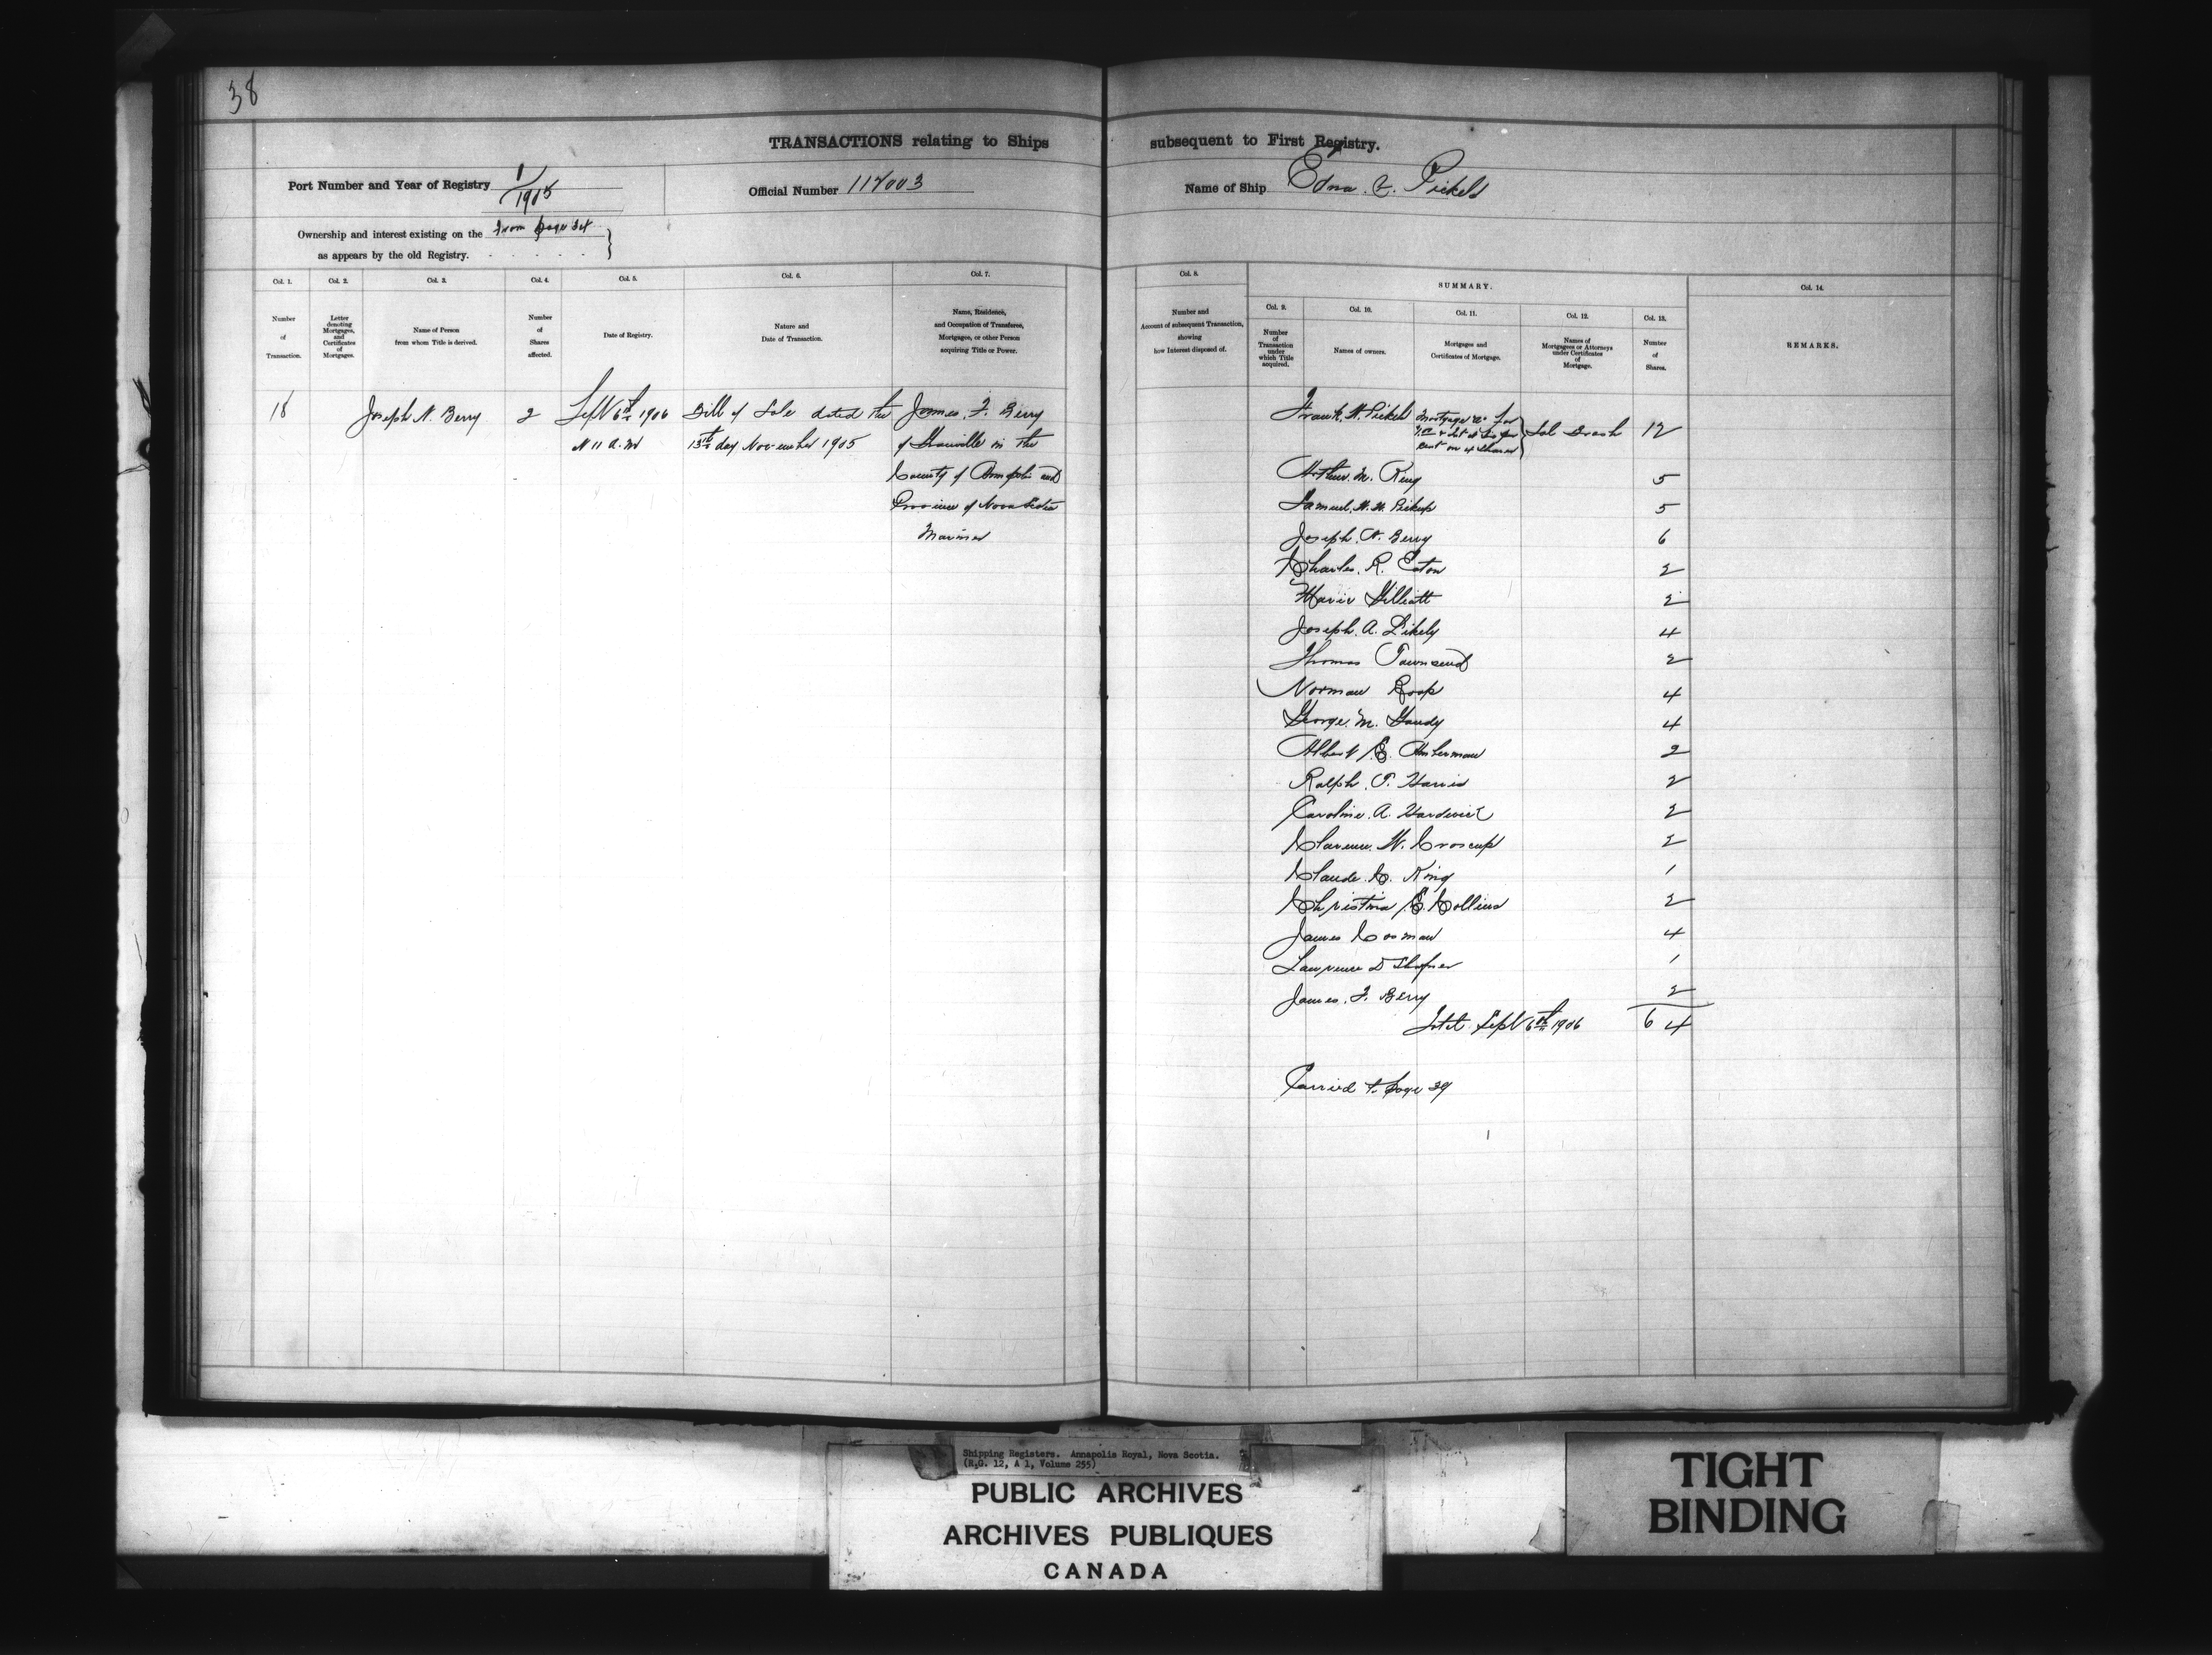 38
TRANSACTIONS relating to Ships subsequent to First Registry.
Port Number and Year of Registry 1/1905
Official Number 117003
Name of Ship Edna V. Pickels
Ownership and interest existing on the From page 34
as appears by the old Registry.
Col. 1. Col. 2. Col. 3. Col. 4. Col. 5. Col. 6. Col. 7. Col. 8. SUMMARY. Col. 14.
Col. 9. Col. 10. Col. 11. Col. 12. Col. 13.
Number of Transaction.
Letter denoting Mortgages, and Certificates of Mortgages.
Name of Person from whom Title is derived.
Number of Shares affected.
Date of Registry.
Nature and Date of Transaction.
Name, Residence, and Occupation of Transferee, Mortgagee, or other Person acquiring Title or Power.
Number and Account of subsequent Transaction, showing how Interest disposed of.
Number of Transaction under which Title acquired.
Names of owners.
Mortgages and Certificates of Mortgage.
Names of Mortgagees or Attorneys under Certificates of Mortgage.
Number of Shares.
REMARKS.
18 Joseph N. Berry 2 Sept 6th 1906 Bill of Sale dated the James. F. Berry
at 11 A.M 13th day November 1905 of Granville in the
County of Annapolis and
Province of Nova Scotia
Mariner
Frank. W. Pickels Mortgage 12
Arthur. M. King 5
Samuel. W. W. Pickup 5
Joseph. N. Berry 6
Charles. R. Eaton 2
Marie Gilliatt 2
Joseph. A. Likely 4
Thomas Townsend 2
Norman Roop 4
George. M. Gaudy 4
Albert E. Amberman 2
Ralph. T. Harris 2
Caroline. A. Hardwick 2
Clarence. W. Croscup 2
Claude. C. King 1
Christina E. Collins 2
James Corman 4
Lawrence D Shafner 1
James. F. Berry 2
Total Sept 6th 1906 64
Carried to page 39
Shipping Registers. Annapolis Royal, Nova Scotia.
(R.G. 12, A 1, Volume 255)
PUBLIC ARCHIVES
ARCHIVES PUBLIQUES
CANADA
TIGHT
BINDING